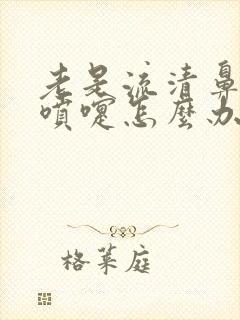 老是流清鼻
喷嚏怎麼办
格莱庭